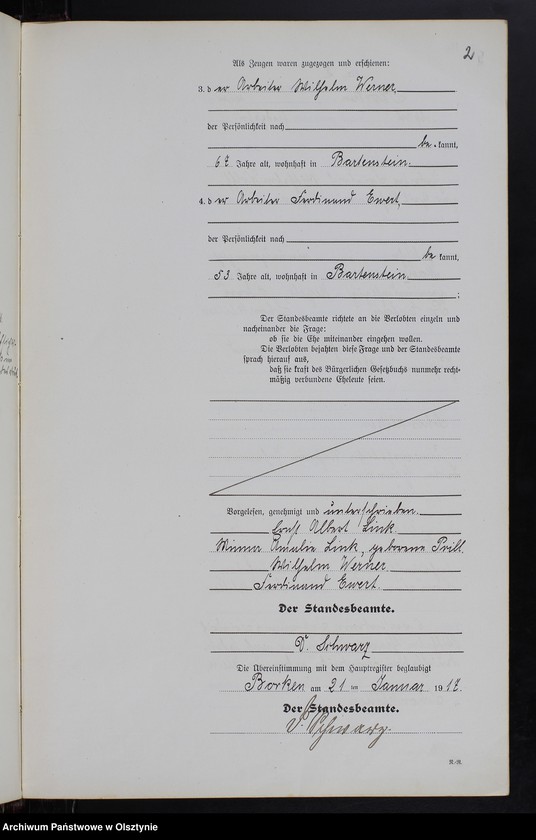 2
Als Zeugen waren zugezogen und erschienen:
3. der Arbeiter Wilhelm Werner
der Persönlichkeit nach
be kannt,
67 Jahre alt, wohnhaft in Bartenstein.
4. der Arbeiter Ferdinand Ewert,
der Persönlichkeit nach
be kannt,
53 Jahre alt, wohnhaft in Bartenstein
;
Der Standesbeamte richtete an die Verlobten einzeln und
nacheinander die Frage:
ob sie die Ehe miteinander eingehen wollen.
Die Verlobten bejahten diese Frage und der Standesbeamte
sprach hierauf aus,
daß sie kraft des Bürgerlichen Gesetzbuchs nunmehr recht-
mäßig verbundene Eheleute seien.
Vorgelesen, genehmigt und unterschrieben.
Ernst Albert Link.
Minna Amalie Link, geborene Prill.
Wilhelm Werner
Ferdinand Ewert.
Der Standesbeamte.
Schwarz
Die Übereinstimmung mit dem Hauptregister beglaubigt
Borken am 21 ten Januar 1917.
Der Standesbeamte.
Schwarz.
Archiwum Państwowe w Olsztynie